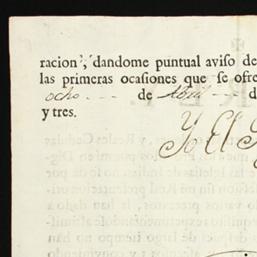 racion, dandome puntual aviso de
las primeras ocasiones que se ofre
ocho --- de Abril --- d
y tres.
Yo El